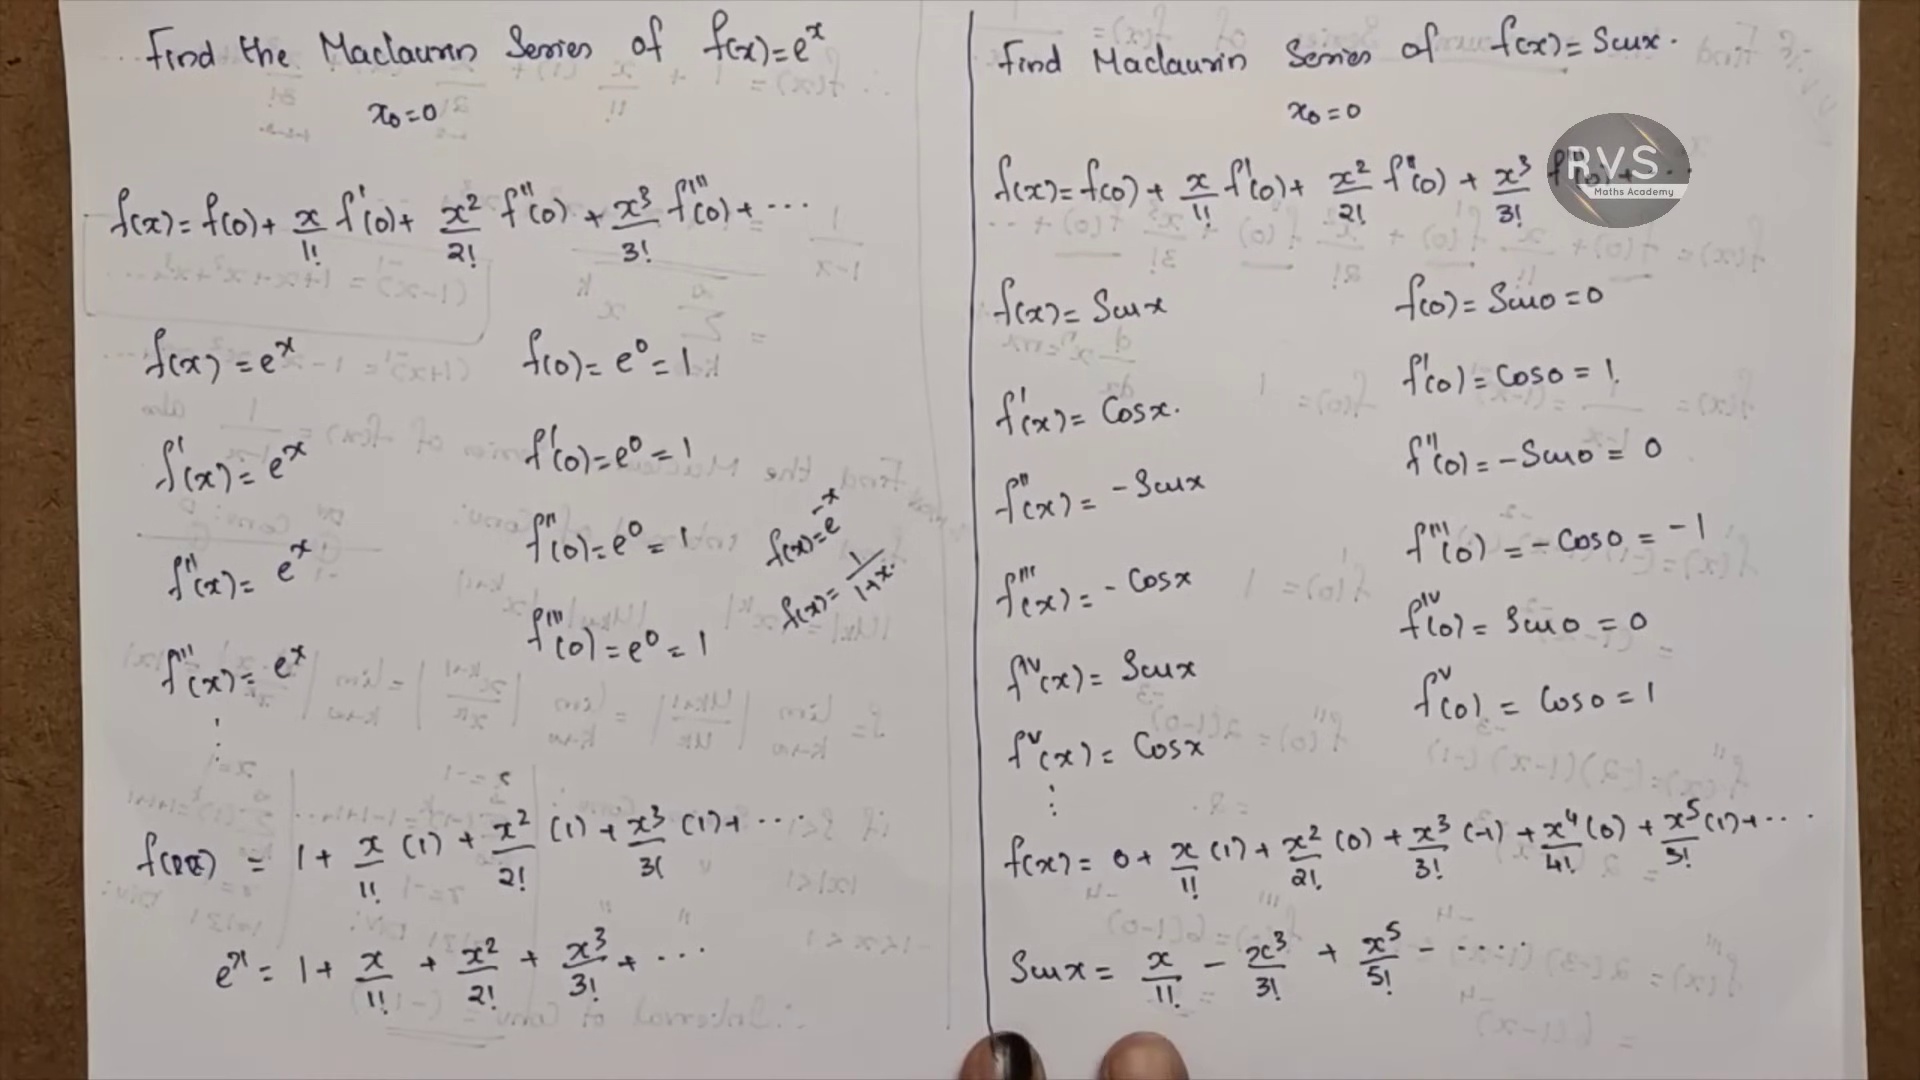 Find the Maclaurin Series of f(x)=eˣ
x₀=0
f(x)= f(0)+ x/1! f'(0)+ x²/2! f''(0) + x³/3! f'''(0)+ ...
f(x) = eˣ
f(0)= e⁰ = 1
f'(x) = eˣ
f'(0)=e⁰ = 1
f''(x)= eˣ
f''(0)=e⁰ = 1
f'''(x)= eˣ
f'''(0)=e⁰ = 1
f(x)=e⁻ˣ
f(x)= 1/1+x.
⋮
= 1+ x/1! (1) + x²/2! (1) + x³/3! (1)+ ...
eˣ = 1+ x/1! + x²/2! + x³/3! + ...
Find Maclaurin Series of f(x)= Sinx.
x₀=0
f(x)= f(0) + x/1! f'(0)+ x²/2! f''(0) + x³/3!
RVS
Maths Academy
f(x)= Sinx
f(0)= Sin0 = 0
f'(x)= Cosx.
f'(0)= Cos0 = 1.
f''(x)= - Sinx
f''(0)= - Sin0 = 0
f'''(x)= - Cosx
f'''(0) = - Cos0 = -1
fⁱᵛ(x)= Sinx
fⁱᵛ(0)= Sin0 = 0
fᵛ(x)= Cosx
fᵛ(0) = Cos0 = 1
⋮
f(x)= 0+ x/1! (1)+ x²/2! (0) + x³/3! (-1) + x⁴/4! (0) + x⁵/5! (1)+ ...
Sinx = x/1! - x³/3! + x⁵/5! - ....